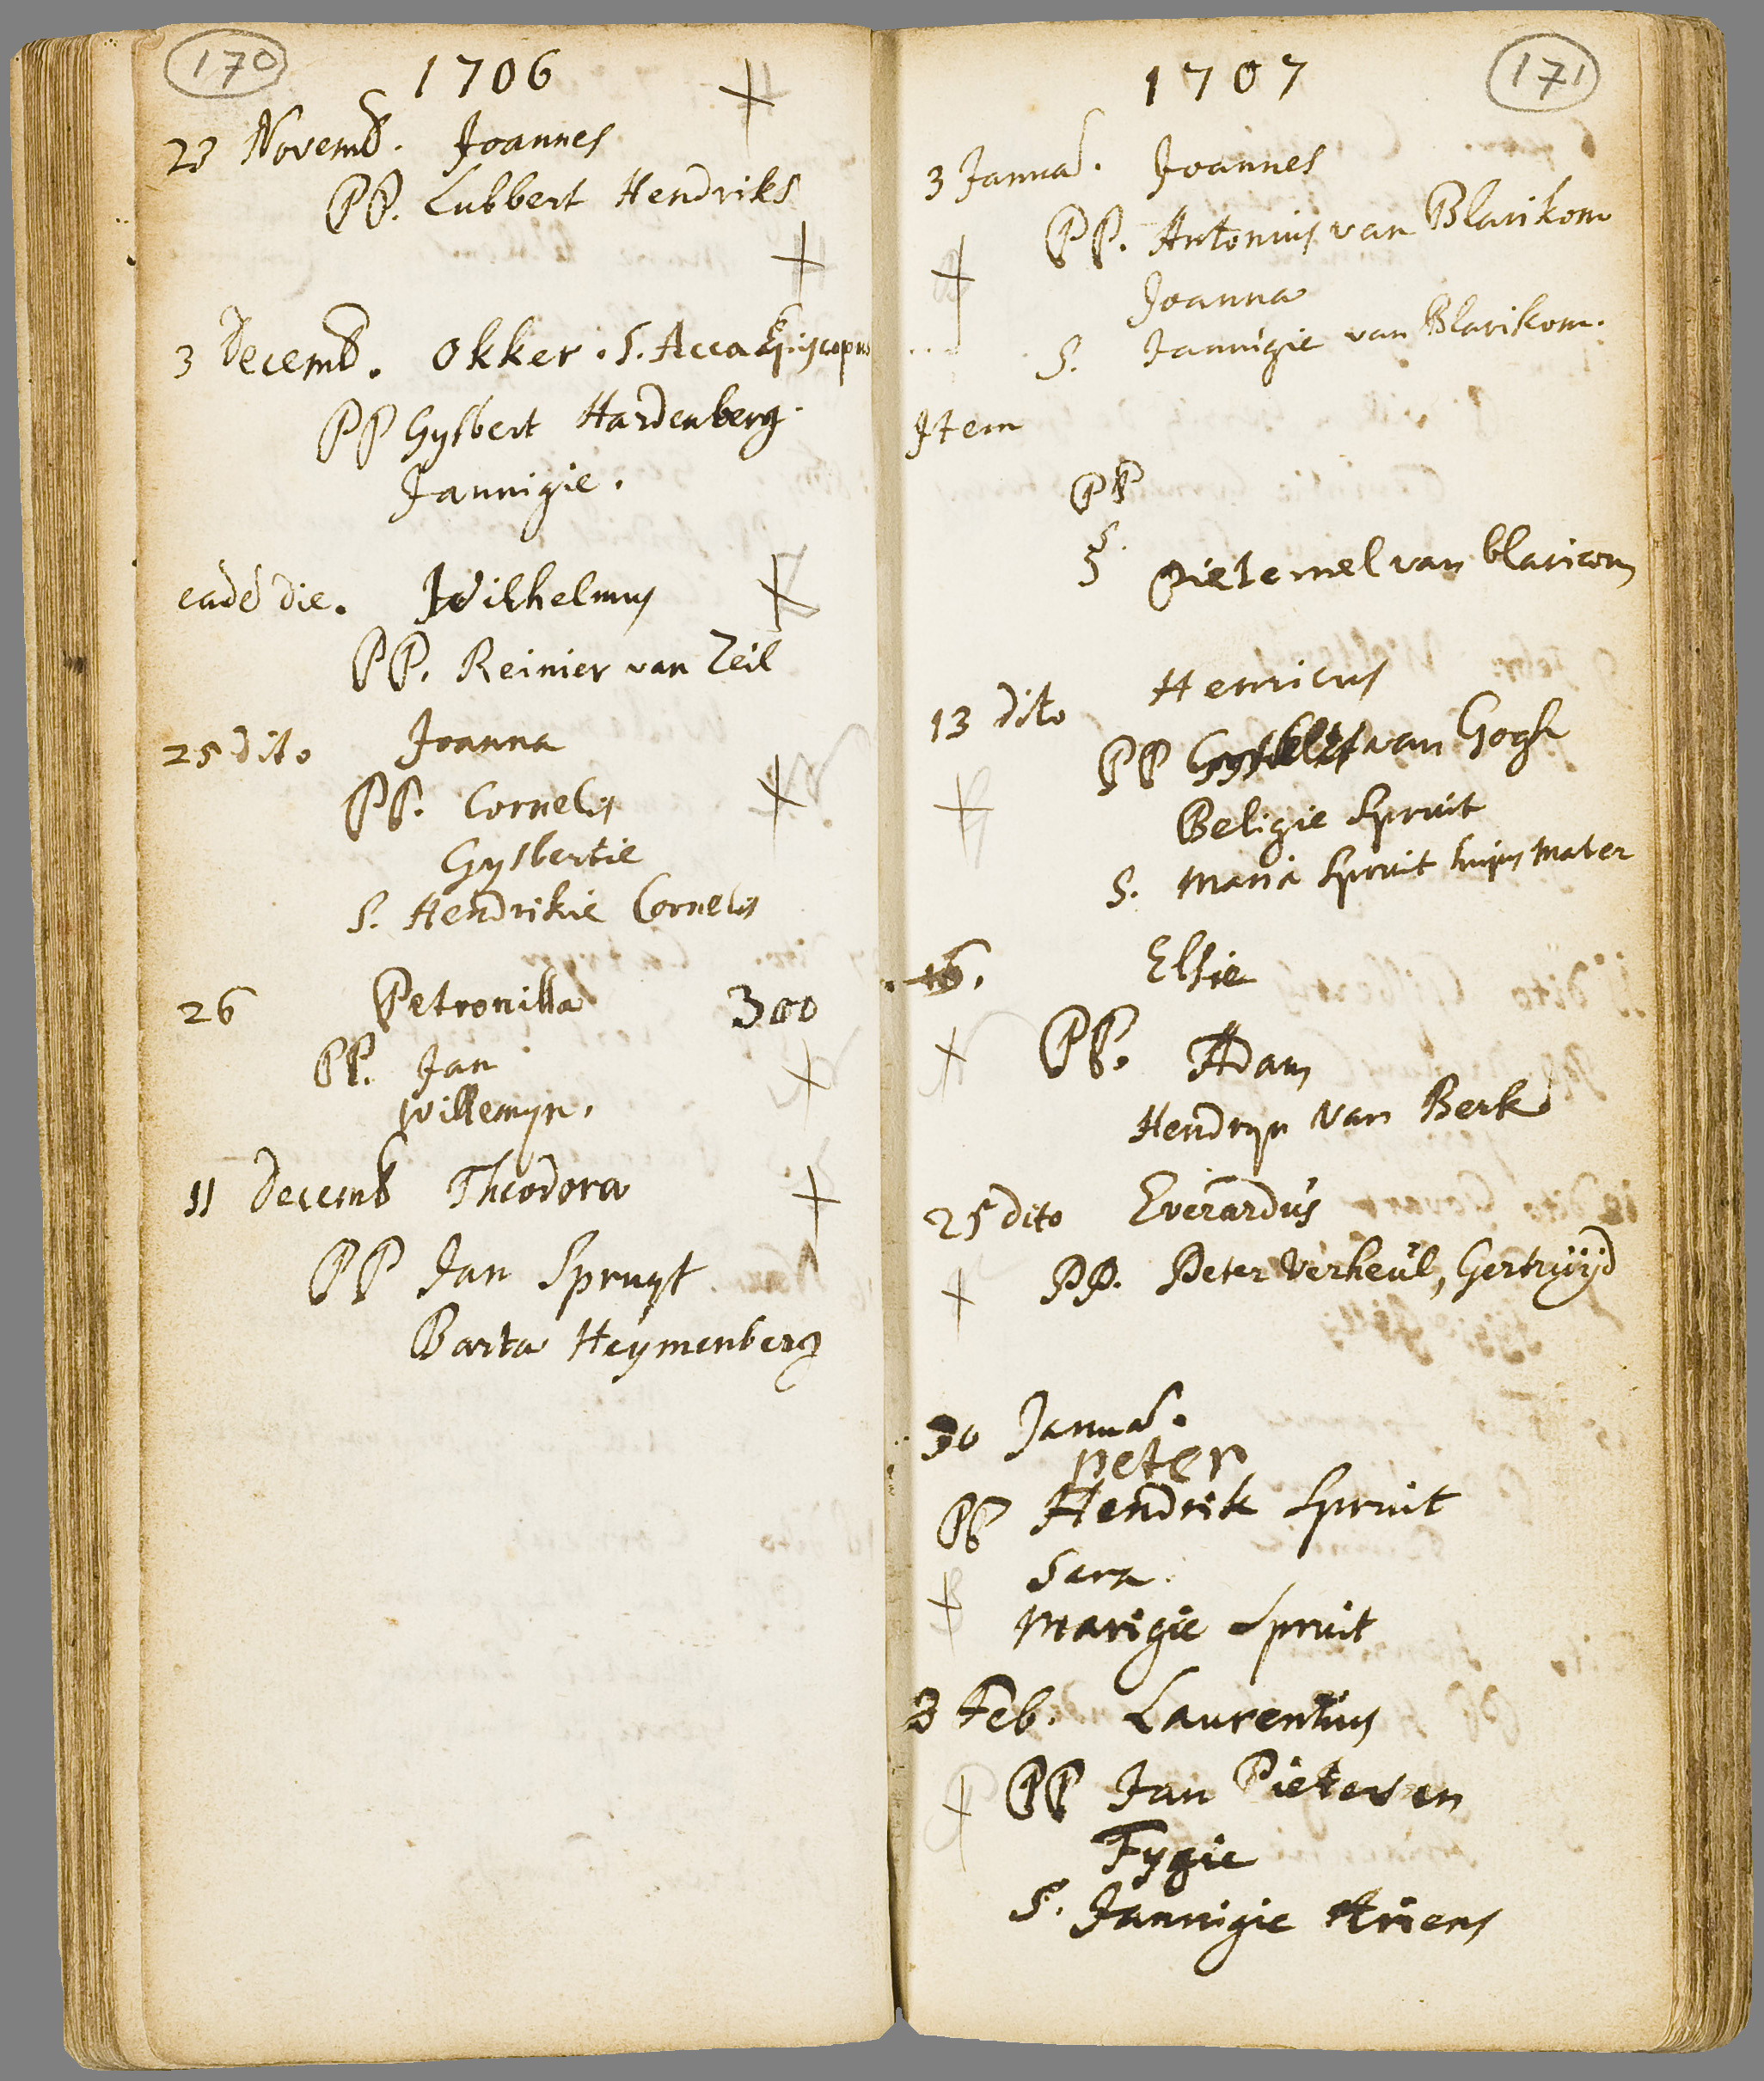 170
1706
23 Novemb. Joannes
PP. Lubbert Hendriks
3 Decemb. Okker. S. Acca Episcopus
PP Gysbert Hardenberg.
Jannigie.
eadē die. Wilhelmus
PP. Reinier van Zeil
25 dito Joanna
PP. Cornelis
Gysbertie
S. Hendrikie Cornelis
26 Petronilla 300
PP. Jan
Willemyn.
11 Decemb Theodora
PP Jan Spruyt
Barta Heymenberg
1707
171
3 Januar. Joannes
PP. Antonius van Blarikom
Joanna
S. Jannigie van Blarikom.
Item
PP
S.
Pietemel van blaricom
13 dito Henricus
PP van Gogh
Beligie Spruit
S. Maria Spruit hujus mater
16. Elsie
PP. Adam
Hendryn van Berk
25 dito Everardus
PP. Peter Verheul, Gertruyd
30 Januar.
peter
PP Hendrik Spruit
Sara.
Marigie Spruit
3 Feb. Laurentius
PP Jan Pietersen
Fygie
S. Jannigie Ariens